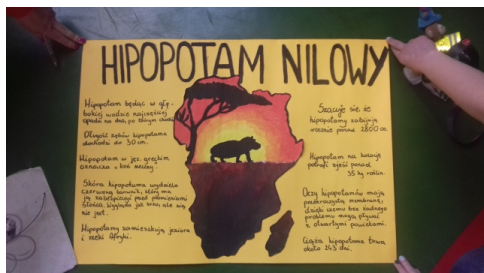 HIPOPOTAM NILOWY
Hipopotam będąc w głę-
bokiej wodzie najczęściej
opada na dno, po którym chodzi
Długość zębów hipopotama
dochodzi do 50 cm.
Hipopotam w jęz. greckim
oznacza "koń rzeczny."
Skóra hipopotama wydziela
czerwony barwnik, który ma
ją zabezpieczyć przed promieniami
słońca, wygląda jak krew, ale nią
nie jest.
Hipopotamy zamieszkują jeziora
i rzeki Afryki.
Szacuje się, że
hipopotamy zabijają
rocznie ponad 2800 os.
Hipopotam na kolację
potrafi zjeść ponad
35 kg roślin.
Oczy hipopotamów mają
przezroczystą membranę,
dzięki czemu bez żadnego
problemu mogą pływać
z otwartymi powiekami.
Ciąża hipopotama trwa
około 243 dni.